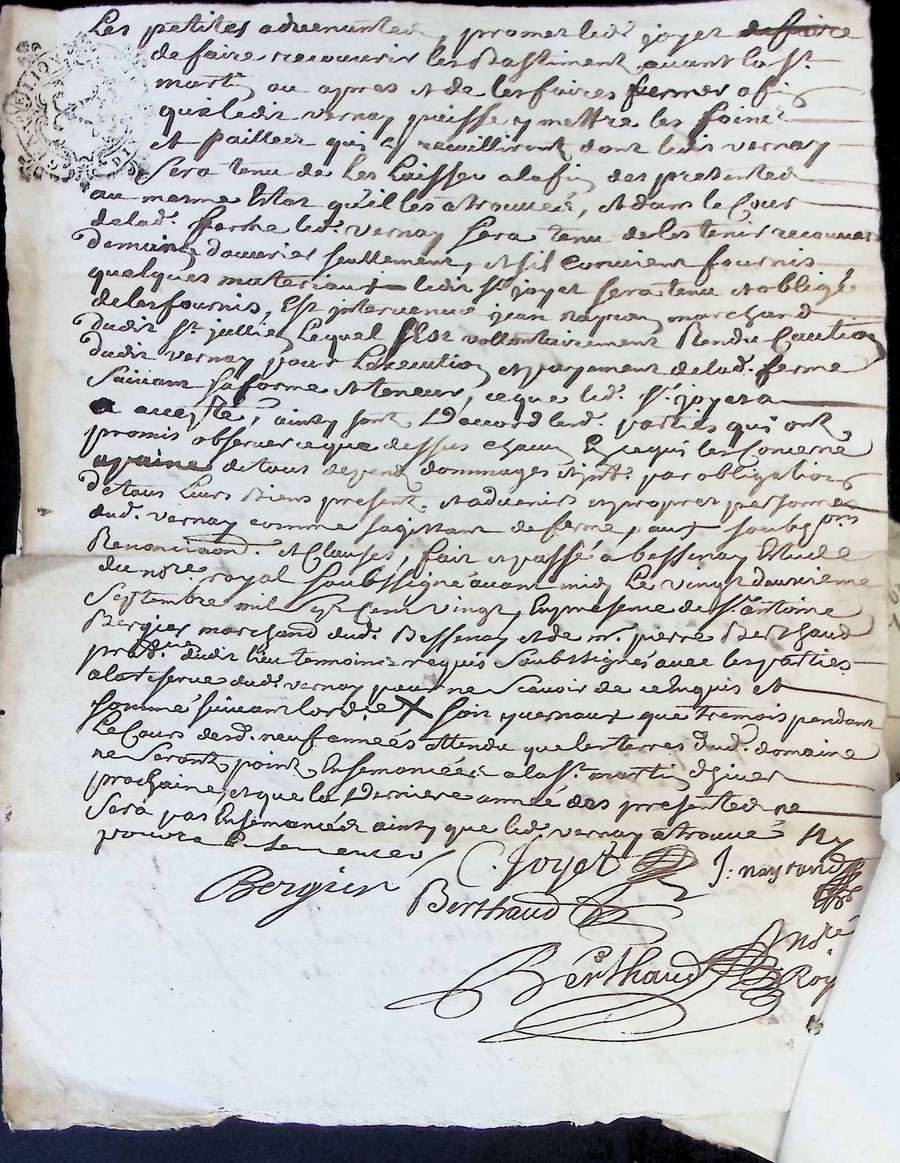 Les petites advenantes, promet led. joyet de faire
de faire recouvrir les Bastiment avant la St
martin ou apres et de les faires fermer afin
quil ledit vernay puisse y mettre les foins
et pailles qui se recuilliront dont ledit vernay
Sera tenu de les Laisser a la fin des presentes
au mesme Estat qu'il les a trouvés, et dans le Cour
de lad. ferme led. vernay sera tenu de les tenir recouvers
de main d'ouvrier seullement, et s'il convient fournir
quelques materiaux ledit Sr joyet sera tenu et obligé
de les fournir, Est intervenue jean nayrand marchand
dudit St jullien Lequel s'est vollontairement Rendu Caution
dudit vernay pour L'execution et payement de lad. ferme
Suivant sa forme et teneur, ce que led. Sr joyet a
accepté, ainsy sont D'accord lesd. parties qui ont
promis observer ce que dessus chacun En ce qui les Concerne
a paine de tous depens dommages et int. par obligation
de tous Leurs Biens present et advenirs et propres personnes
dud. vernay comme s'agissant de ferme, aux soubz.ons
Renonciaond. et Clauses, fait et passé a bessenay Estude
du no.re royal soubssigné avant midy Le vingt deuxieme
Septembre mil sept Cent vingt, En presence de Sr antoine
Bergier marchand dud. Bessenay et de mr. pierre Berthaud
prat. dudit lieu temoins requis soubssignés avec les parties
a la reserve dud. vernay pour ne scavoir de ce Enquis et
sommé suivant l'ordce X soit yvernaux que tremois pendant
Le Cours desd. neuf années attendu que les terres dud. domaine
ne Seront point Ensemancées a la St. martin d'hiver
prochaine, et que la Derniere année des presentes ne
Sera pas Ensemancée ainsy que led. vernay a trouvé
C. Joyet J: nayrand
Bergier
Berthaud
Berthaud
Roy